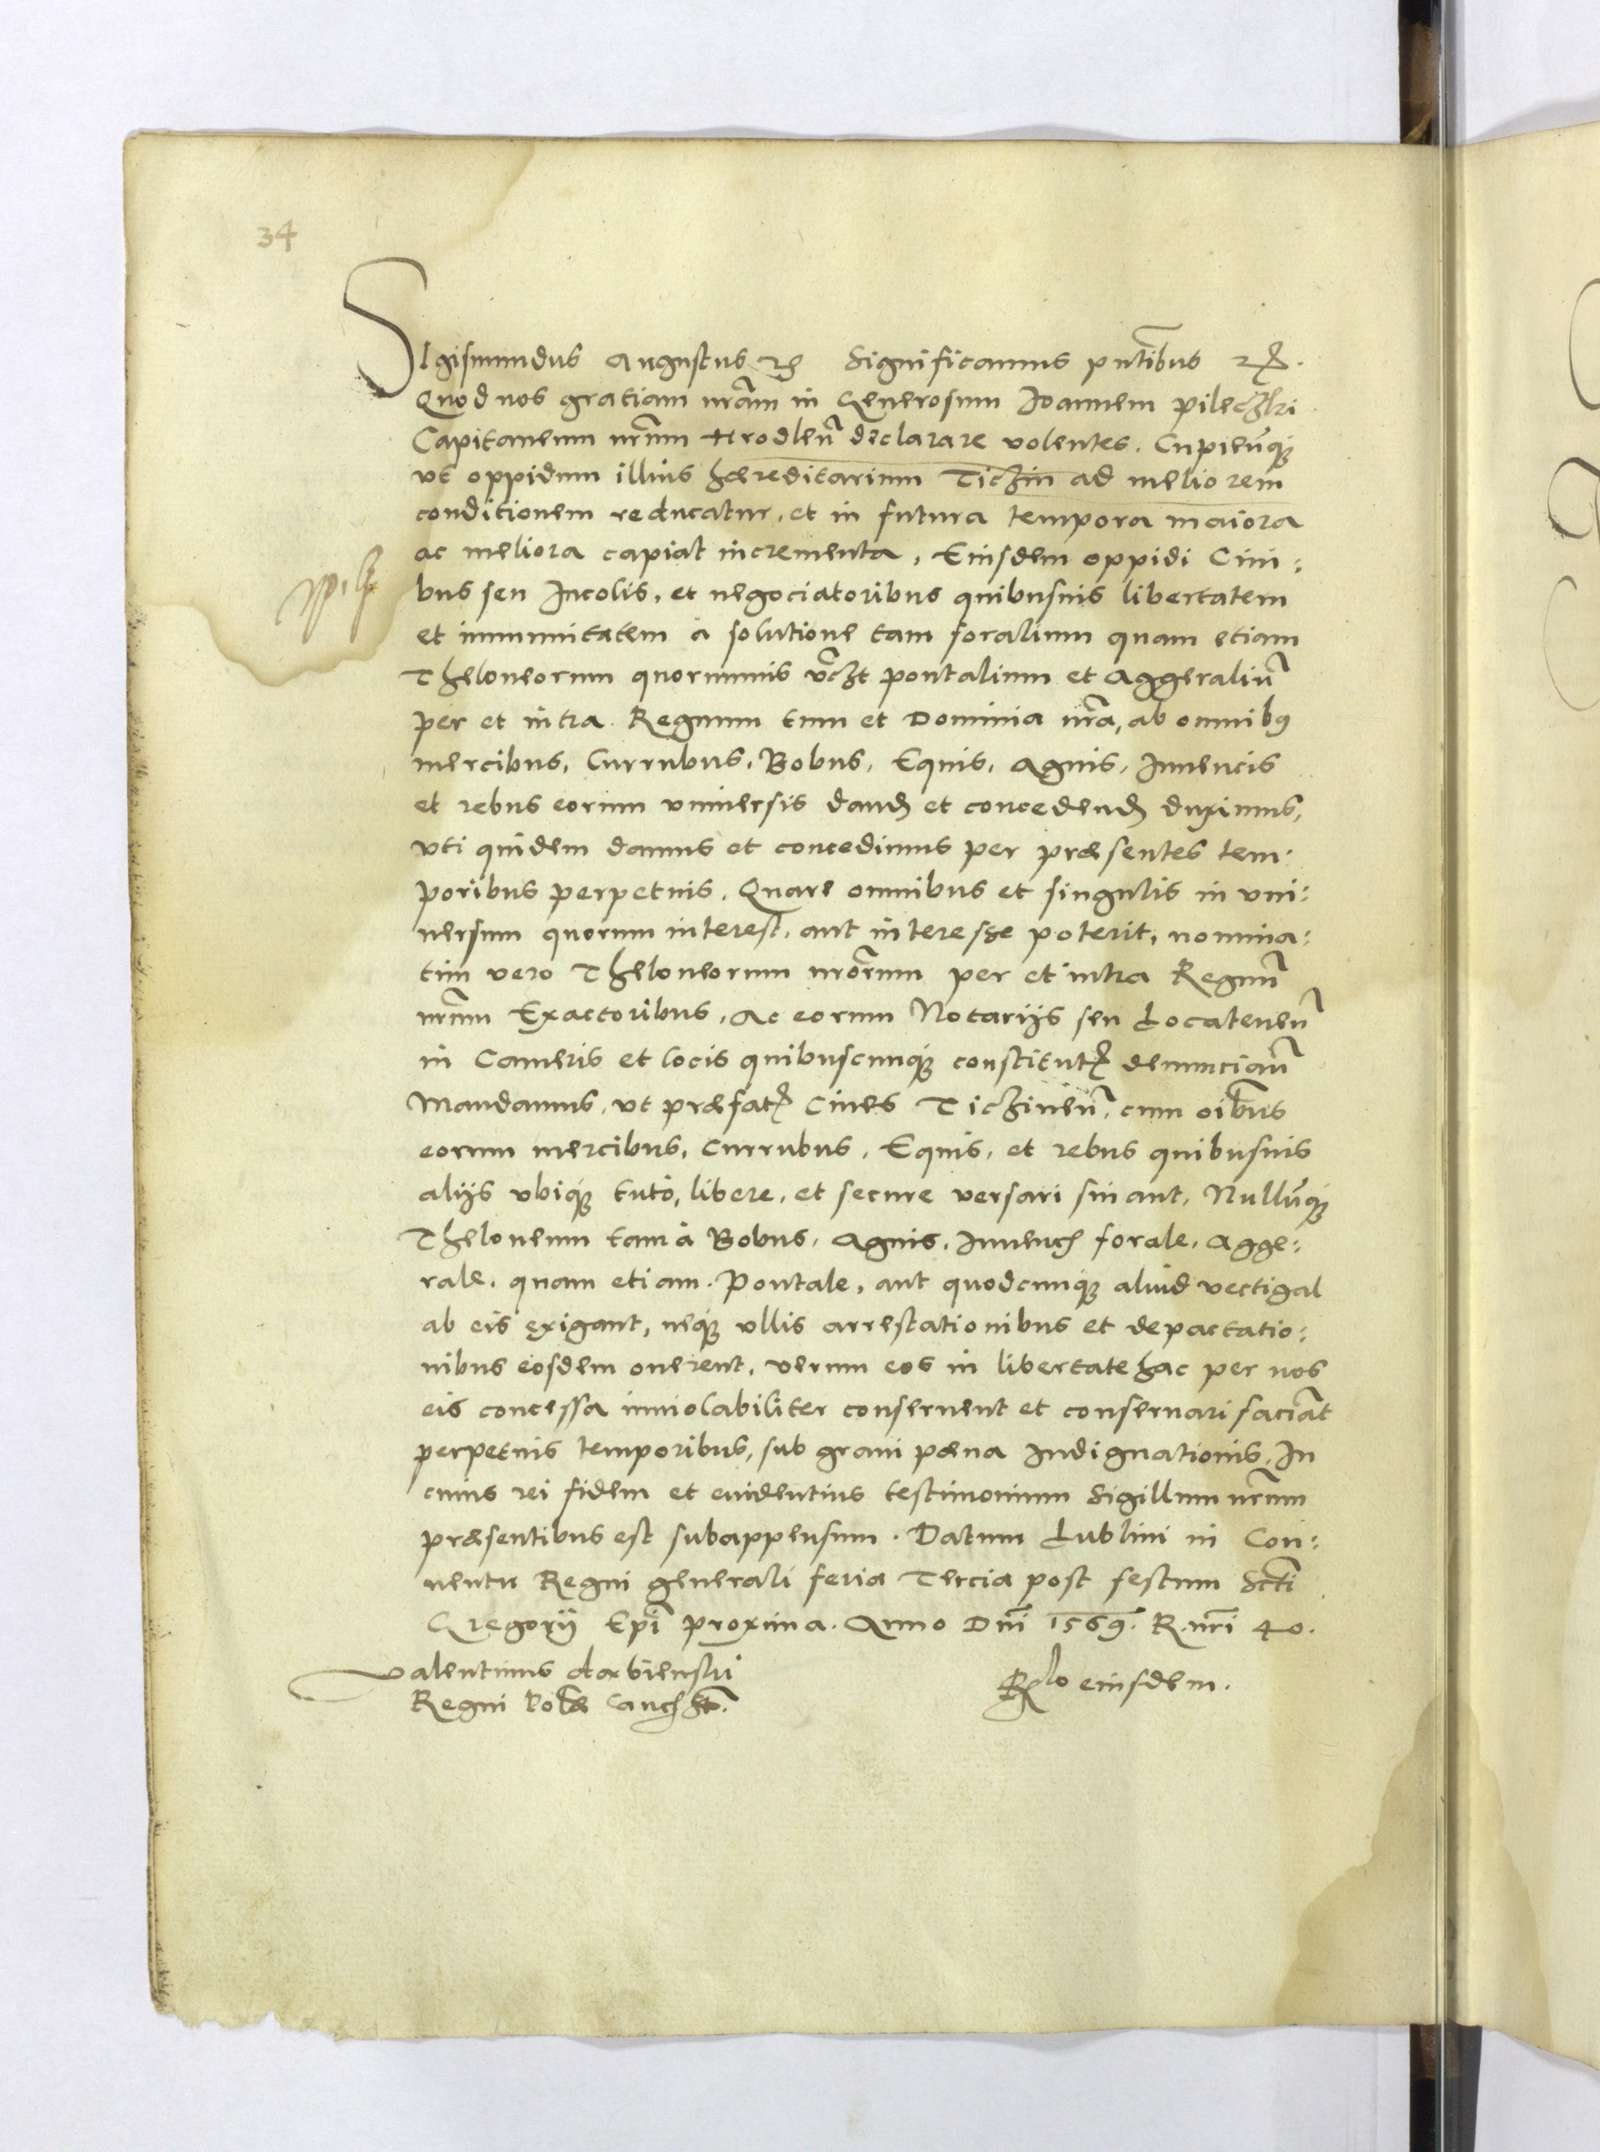 34
SIgismundus Augustus etc Significamus pñtibus etc.
Quod nos gratiam nr̃am in Generosum Ioannem pileczki
Capitaneum nr̃um Hrodleñ declarare volentes. Cupieñq;
vt oppidum illius hæreditarium Ticzin ad meliorem
conditionem reducatur, et in futura tempora maiora
ac meliora capiat incrementa, Eiusdem oppidi Ciui:
bus seu Incolis, et negociatoribus quibusuis libertatem
et immunitatem à solutione tam foralium quam etiam
Theloneorum quorumuis vczt pontalium et Aggeraliũ
per et intra Regnum tum et Dominia nr̃a, ab omnibq
mercibus, Curribus, Bobus, Equis, Agnis, Iuuencis
et rebus eorum vniuersis dand et concedend duximus,
vti quidem damus et concedimus per præsentes tem:
poribus perpetuis. Quare omnibus et singulis in vni:
uersum quorum interest, aut interesse poterit, nomina:
tim vero Theloneorum nr̃orum per et intra Regnũ
nr̃um Exactoribus, Ac eorum Notarijs seu Locateneñ
in Cameris et locis quibuscunq; constitut denunciañ
Mandamus, vt præfat Ciues Ticzineñ, cum oĩbus
eorum mercibus, Curribus, Equis, et rebus quibusuis
alijs vbiq; tutò, libere, et secure versari sinant, Nullũq;
Theloneum tam à Bobus, Agnis, Iuuenc forale, Agge:
rale, quam etiam Pontale, aut quodcunq; aliud vectigal
ab eis exigant, neq; vllis arrestationibus et depactatio:
nibus eosdem onerent, verum eos in libertate hac per nos
eis concessa inuiolabiliter conseruent et conseruari faciãt
perpetuis temporibus, sub graui pœna Indignationis, In
cuius rei fidem et euidentius testimonium Sigillum nr̃um
præsentibus est subappensum. Datum Lublini in Con:
uentu Regni generali feria Tercia post festum Scti
Gregorij Epĩ proxima. Anno Dñi 1569. R. nr̃i 40.
Valentinus dæbienski
Regni Pol Canc
Rlo eiusdem.